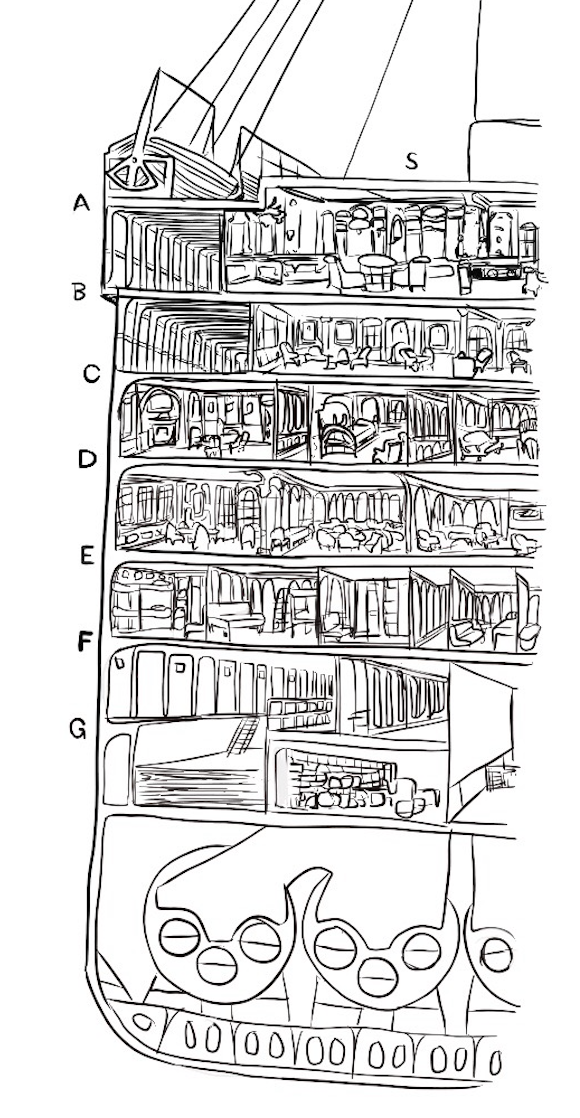 S
A
B
C
D
E
F
G